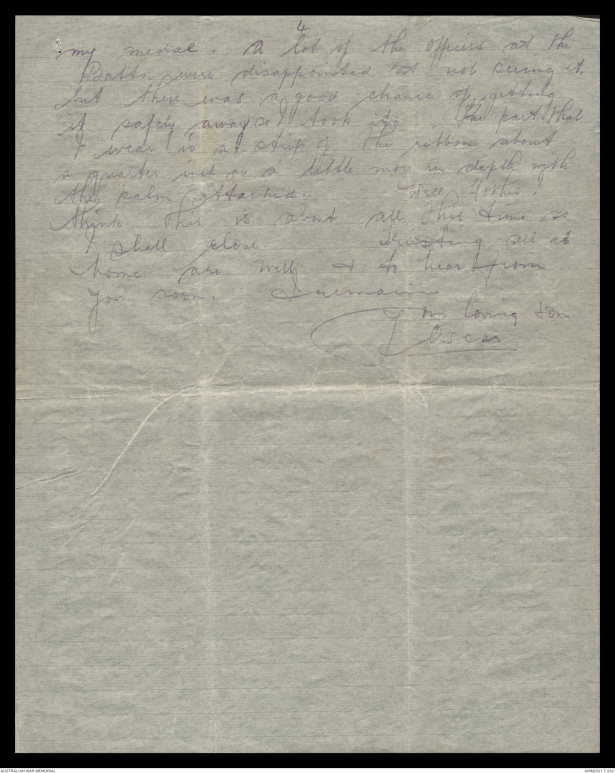 4
my medal. A lot of the officers at the
Battn were disappointed at not seeing it,
but there was a good chance of getting
it safely away so I took it. The part that
I wear is a strip of the ribbon about
a quarter inch or a little more in depth with
the palm attached. Well Mother I
think this is about all this time so
I shall close. Trusting all at
home are well & to hear from
you soon. I remain
Your loving Son
Oscar
AUSTRALIAN WAR MEMORIAL